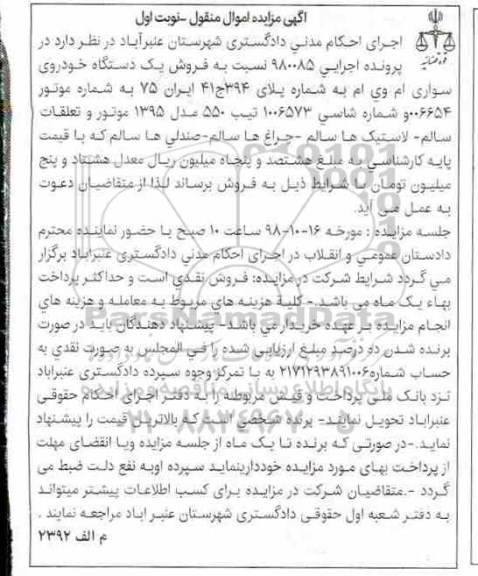 آگهی مزایده اموال منقول -نوبت اول
اجرای احکام مدنی دادگستری شهرستان عنبرآباد در نظر دارد در
پرونده اجرایی ۹۸۰۰۸۵ نسبت به فروش یک دستگاه خودروی
سواری ام وی ام به شماره پلای ۳۹۴ج۴۱ ایران ۷۵ به شماره موتور
۰۰۶۶۵۴و شماره شاسی ۱۰۰۶۵۷۳ تیپ ۵۵۰ مدل ۱۳۹۵ موتور و تعلقات
سالم- لاستیک ها سالم -چراغ ها سالم-صندلي ها سالم که با قیمت
پایه کارشناسی به مبلغ هشتصد و پنجاه میلیون ریال معدل هشتاد و پنج
میلیون تومان با شرایط ذیل به فروش برساند لذا از متقاضیان دعوت
به عمل می آید.
جلسه مزایده : مورخه ۱۶-۱۰-۹۸ ساعت ۱۰ صبح با حضور نماینده محترم
دادستان عمومی و انقلاب در اجرای احکام مدنی دادگستری عنبراباد برگزار
می گردد شرایط شرکت در مزایده: فروش نقدی است و حداکثر پرداخت
بهاء یک ماه می باشد.- کلیه هزینه های مربوط به معامله و هزینه های
انجام مزایده بر عهده خریدار می باشد- پیشنهاد دهندگان باید در صورت
برنده شدن ده درصد مبلغ ارزیابی شده را في المجلس به صورت نقدی به
حساب شماره۲۱۷۱۲۹۳۸۹۱۰۰۶ به یا تمرکز وجوه سپرده دادگستری عنبراباد
نزد بانک ملی پرداخت و فیش مربوطه را به دفتر اجرای احکام حقوقی
عنبراباد تحویل نمایند- برنده شخصی است که بالاترین قیمت را پیشنهاد
نماید.-در صورتی که برنده تا یک ماه از جلسه مزایده ویا انقضای مهلت
از پرداخت بهای مورد مزایده خودداریننماید سپرده اوبه نفع دلت ضبط می
گردد -.متقاضیان شرکت در مزایده برای کسب اطلاعات پیشتر میتواند
به دفتر شعبه اول حقوقی دادگستری شهرستان عنبر اباد مراجعه نمایند .
م الف ۲۳۹۲
ParsNamadData
پایگاه اطلاع رسانی مناقصه و مزایده